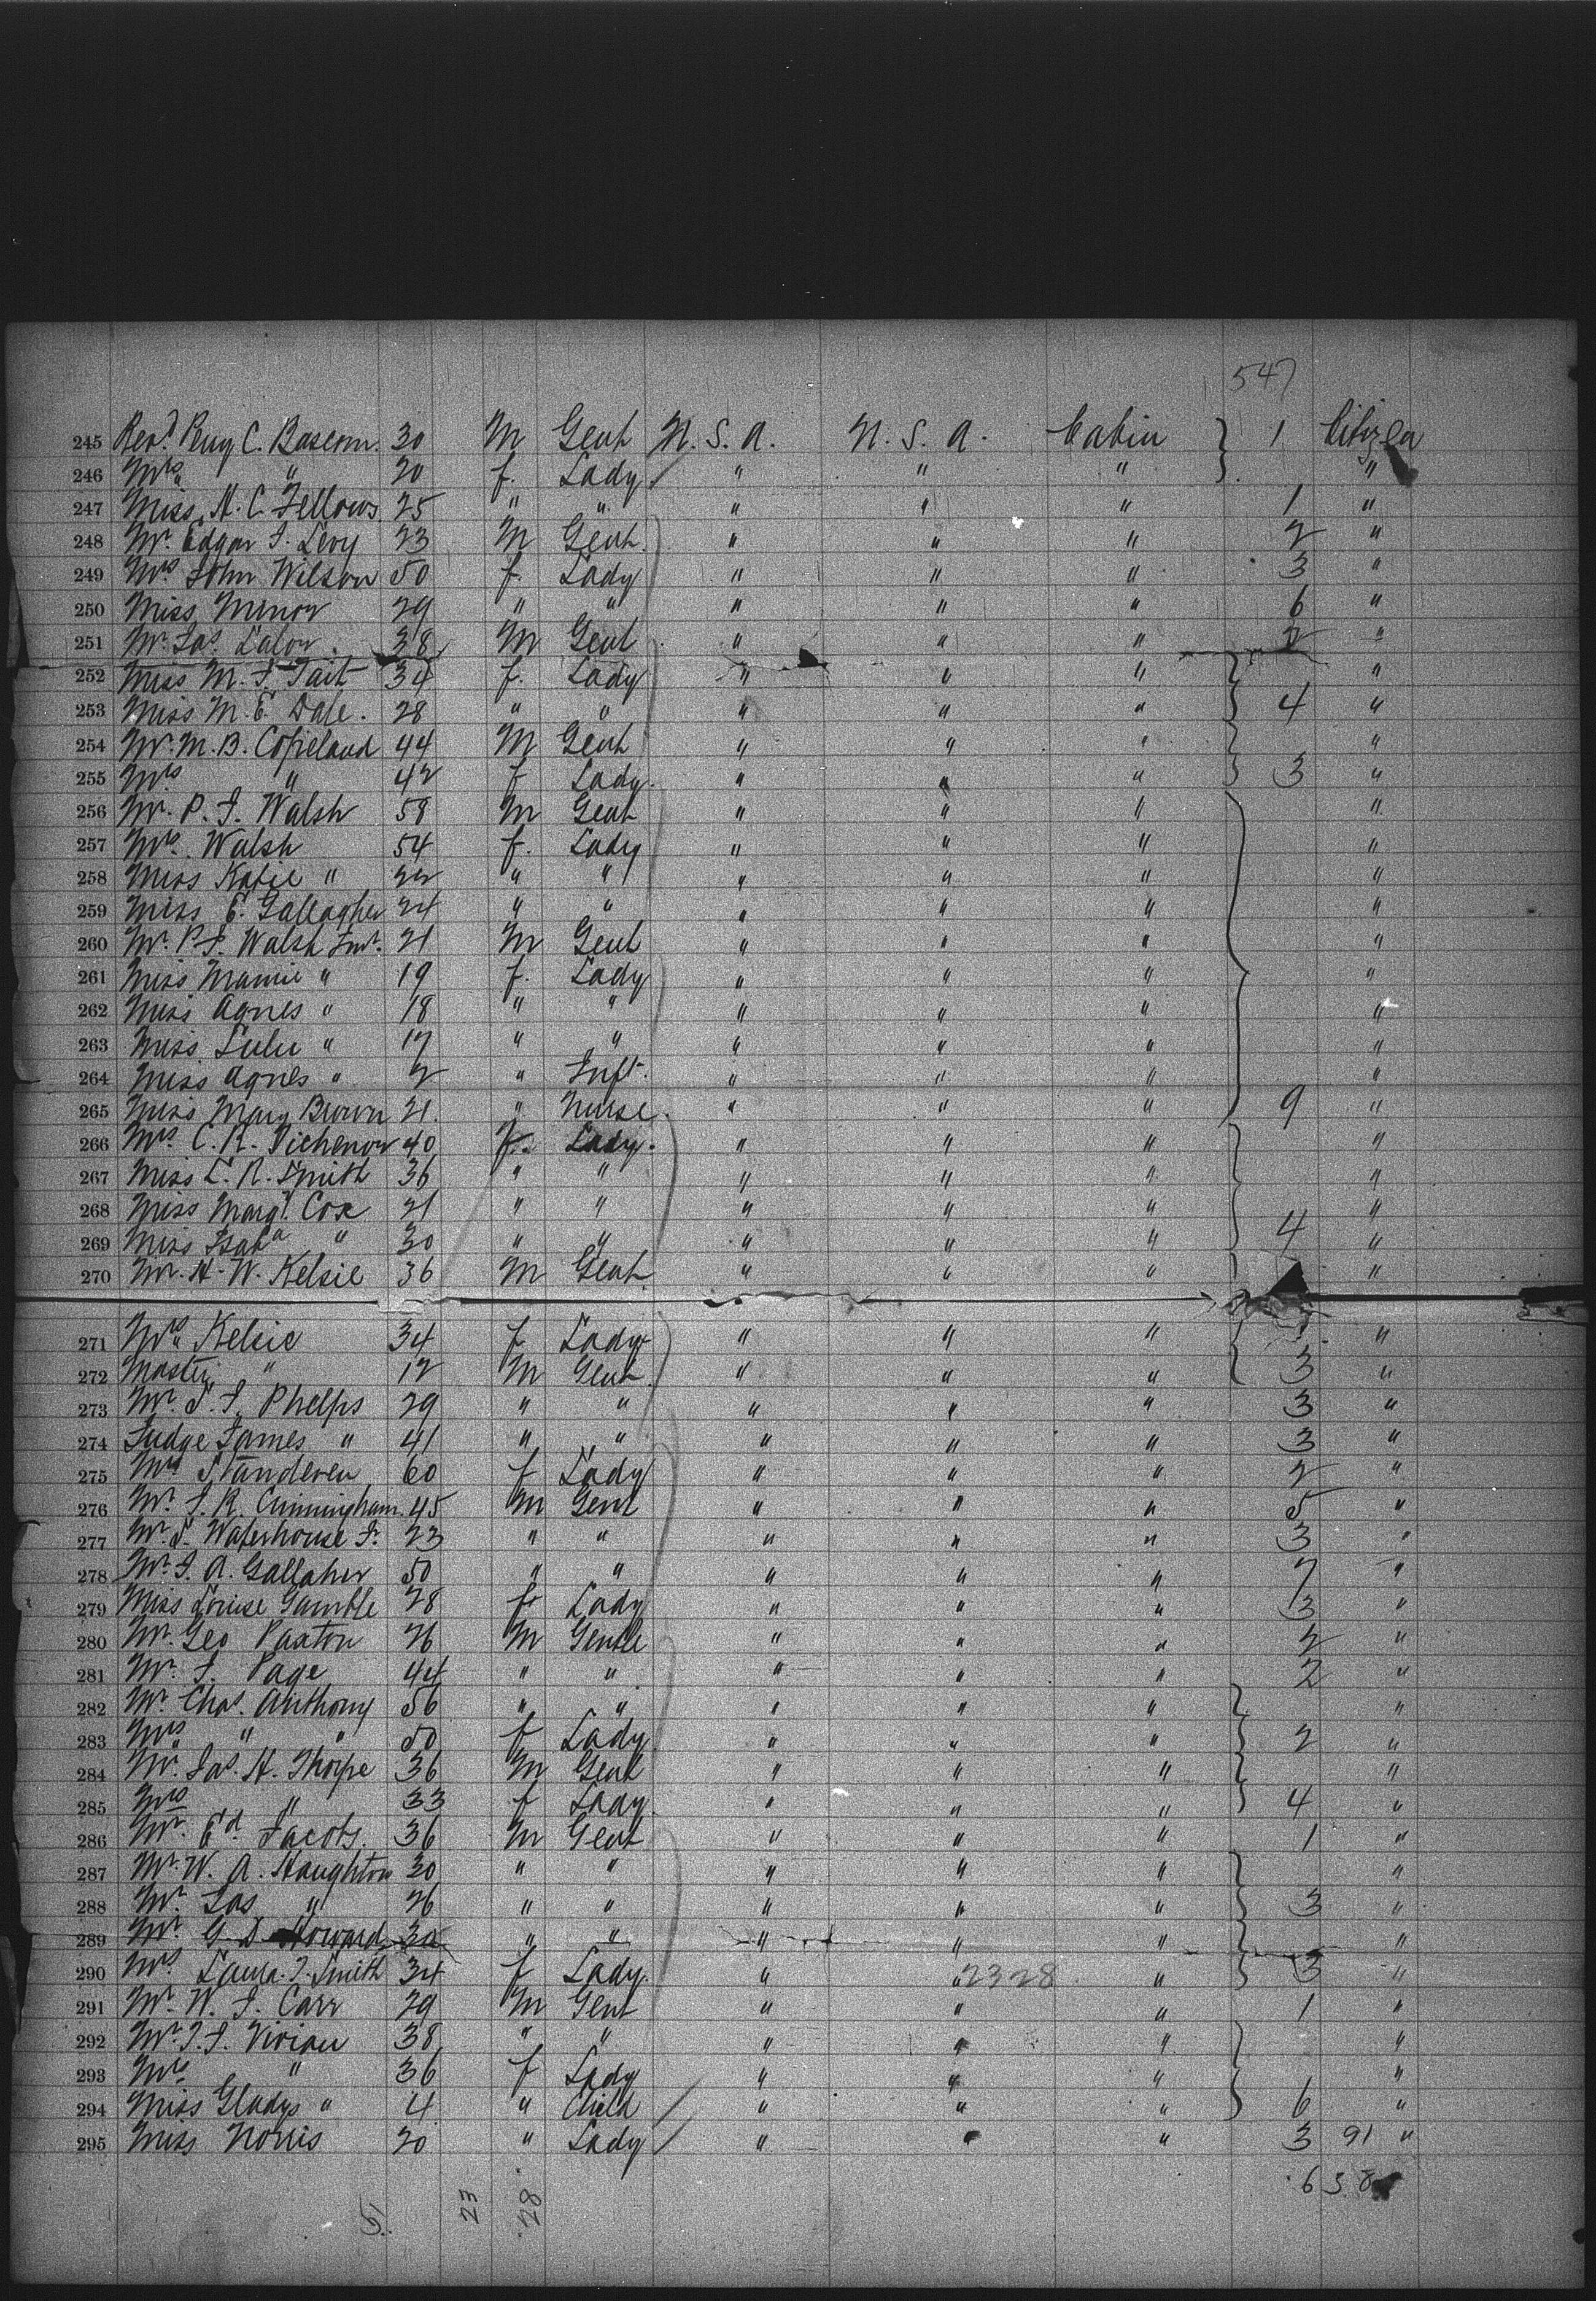 547
245 Revd. Benj C. Bascom. 30 M Gent U. S. A. U. S. A. Cabin 1 Citizen
246 Mrs " 20 f. Lady " " " "
247 Miss H. C. Fellows 25 " " " " " 1 "
248 Mr. Edgar J. Levy 23 M Gent. " " " 2 "
249 Mrs John Wilson 50 f. Lady " " " 3 "
250 Miss Minor 29 " " " " " 6 "
251 Mr. Jas. Lalor. 38 M Gent " " " 2 "
252 Miss M. J. Tait 34 f. Lady " " " "
253 Miss M. E. Dale. 28 " " " " " 4 "
254 Mr. M. B. Copeland 44 M Gent " " " "
255 Mrs " 42 f Lady. " " " 3 "
256 Mr. P. J. Walsh 58 M Gent " " " "
257 Mrs. Walsh 54 f. Lady " " " "
258 Miss Katie " 22 " " " " " "
259 Miss E. Gallagher 24 " " " " " "
260 Mr. P. J. Walsh Junr. 21 M Gent " " " "
261 Miss Mamie " 19 f. Lady " " " "
262 Miss Agnes " 18 " " " " " "
263 Miss Lulu " 17 " " " " " "
264 Miss Agnes " 2 " Inft. " " " "
265 Miss Mary Brown 21. " Nurse. " " " 9 "
266 Mrs. C. R. Tichenor 40 f. Lady. " " " "
267 Miss L. R. Smith 36 " " " " " "
268 Miss Margt. Cox 21 " " " " " "
269 Miss Isaba " 30 " " " " " 4 "
270 Mr. H. W. Kelsie 36 M Gent " " " "
271 Mrs Kelsie 34 f Lady " " " "
272 Master " 12 M Gent. " " " 3 "
273 Mr. S. J. Phelps 29 " " " " " 3 "
274 Judge James " 41 " " " " " 3 "
275 Mrs Standeven 60 f Lady " " " 2 "
276 Mr. J. R. Cunningham. 45 M Gent " " " 5 "
277 Mr. S. Waterhouse Jr. 23 " " " " " 3 "
278 Mr. J. A. Gallaher 50 " " " " " 7 "
279 Miss Louise Gamble 28 f Lady " " " 3 "
280 Mr. Geo Paxton 26 M Gentle " " " 2 "
281 Mr. J. Page 44 " " " " " 2 "
282 Mr. Chas. Anthony 56 " " " " " "
283 Mrs " " 50 f Lady. " " " 2 "
284 Mr. Jas. H. Thorpe 36 M Gent " " " "
285 Mrs " 33 f Lady. " " " 4 "
286 Mr. Ed. Jacobs. 36 M Gent " " " 1 "
287 Mr. W. A. Haughton 30 " " " " " "
288 Mr. Jas " 26 " " " " " 3 "
289 Mr. G D Howard 30 " " " " " "
290 Mrs. Laura. J. Smith 34 f Lady. " " 2328 " 3 "
291 Mr. W. J. Carr 29 M Gent " " " 1 "
292 Mr. J. J. Vivian 38 " " " " " "
293 Mrs " 36 f Lady " " " "
294 Miss Gladys " 4 " Child " " " 6 "
295 Miss Norris 20 " Lady " " " 3 91 "
638
23 28